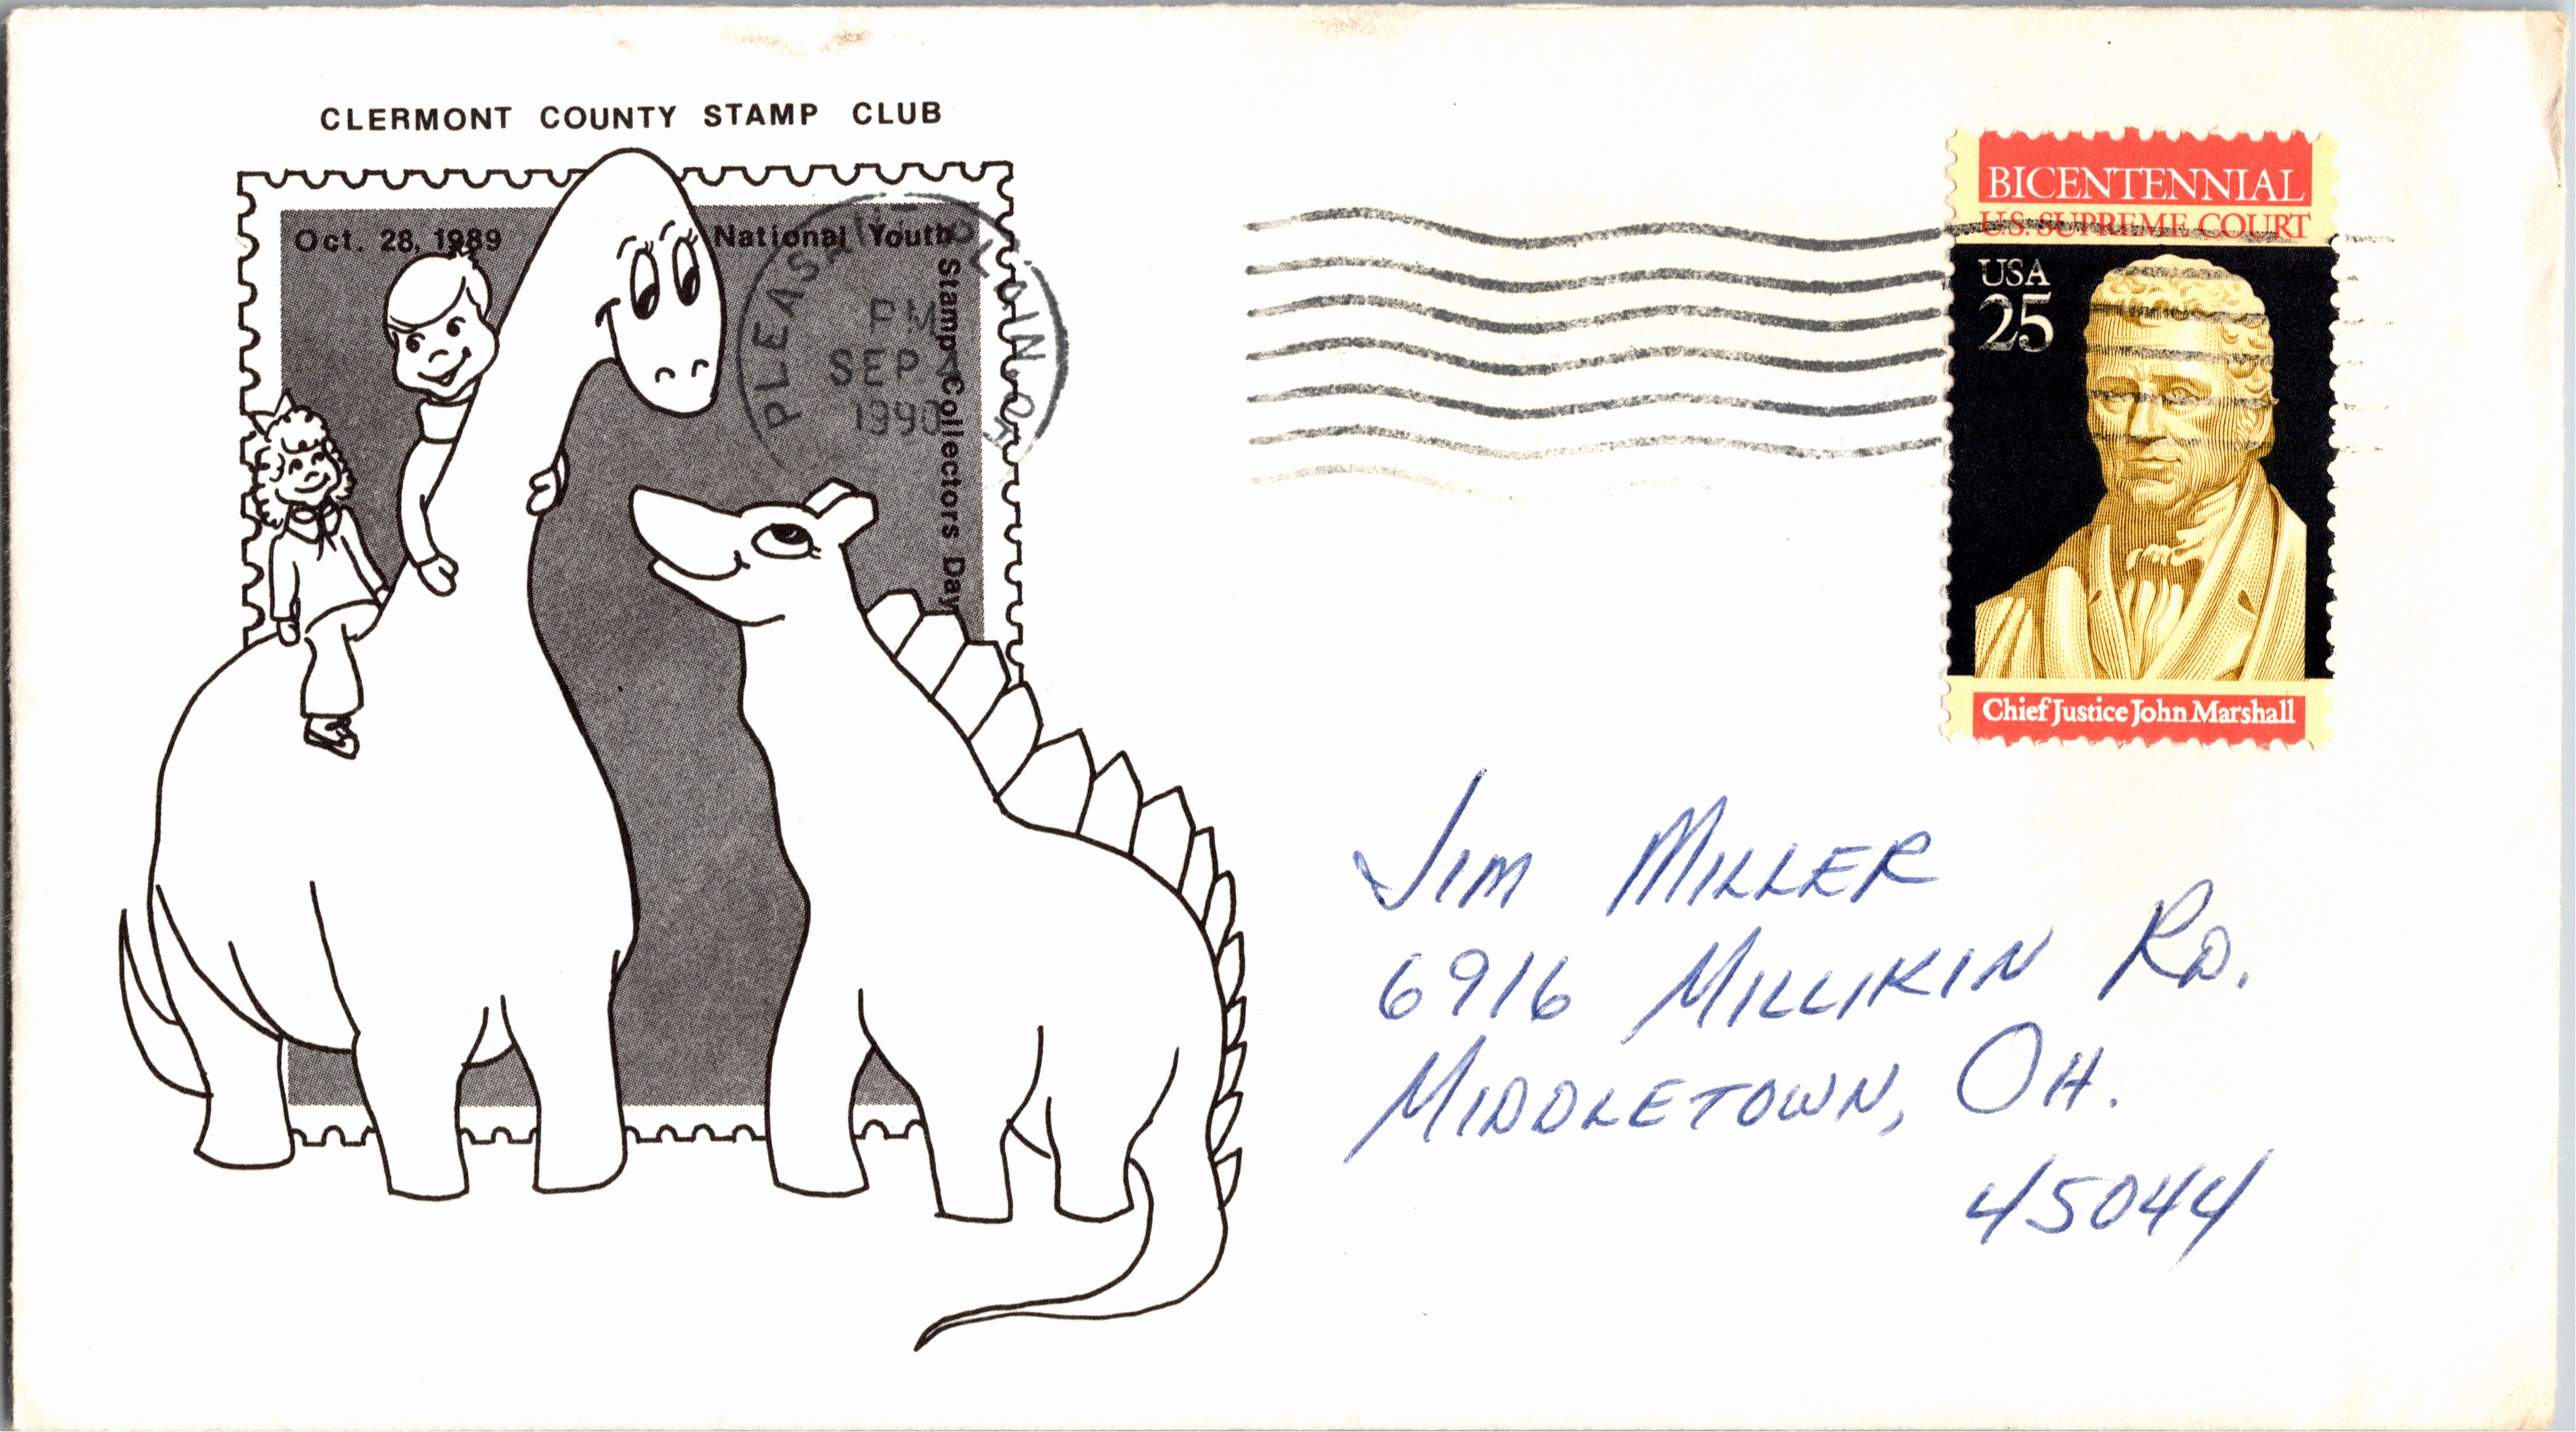 CLERMONT COUNTY STAMP CLUB
Oct. 28, 1989
National Youth
Stamp Collectors Day
PM
SEP 4
1990
BICENTENNIAL
U.S. SUPREME COURT
USA
25
Chief Justice John Marshall
JIM MILLER
6916 MILLIKIN RD.
MIDDLETOWN, OH.
45044